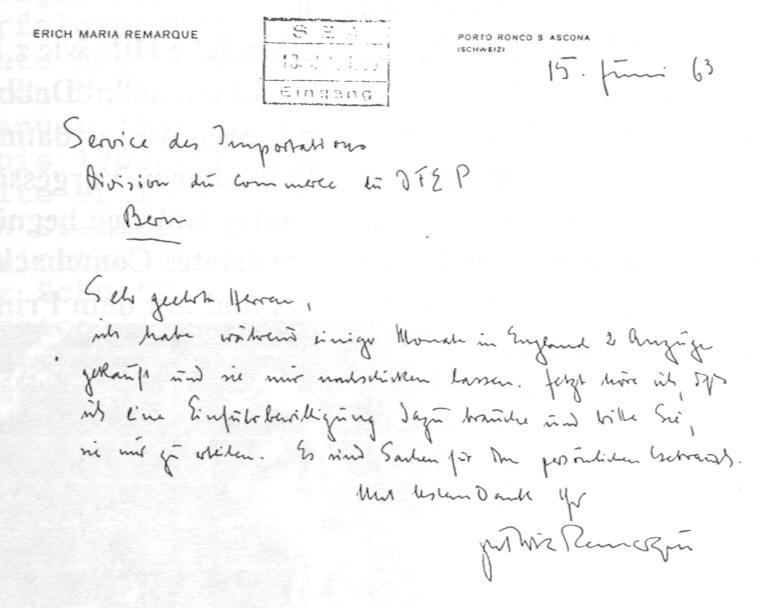 ERICH MARIA REMARQUE
S E A
Eingang
PORTO RONCO S. ASCONA
(SCHWEIZ)
15. Juni 63
Service des Importations
Division du Commerce du DFEP
Bern
Sehr geehrte Herren,
ich habe während einiger Monate in England 2 Anzüge
gekauft und sie mir nachschicken lassen. Jetzt höre ich, dass
ich eine Einfuhrbewilligung dazu brauche und bitte Sie,
sie mir zu erteilen. Es sind Sachen für den persönlichen Gebrauch.
Mit bestem Dank Ihr
Remarque